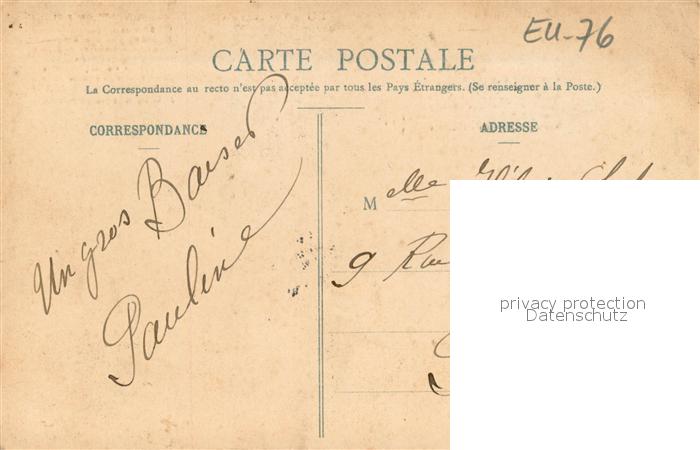 EU-76
CARTE POSTALE
La Correspondance au recto n'est pas acceptée par tous les Pays Étrangers. (Se renseigner à la Poste.)
CORRESPONDANCE
Un gros Baiser
Pauline
ADRESSE
Melle
9 Rue
privacy protection
Datenschutz